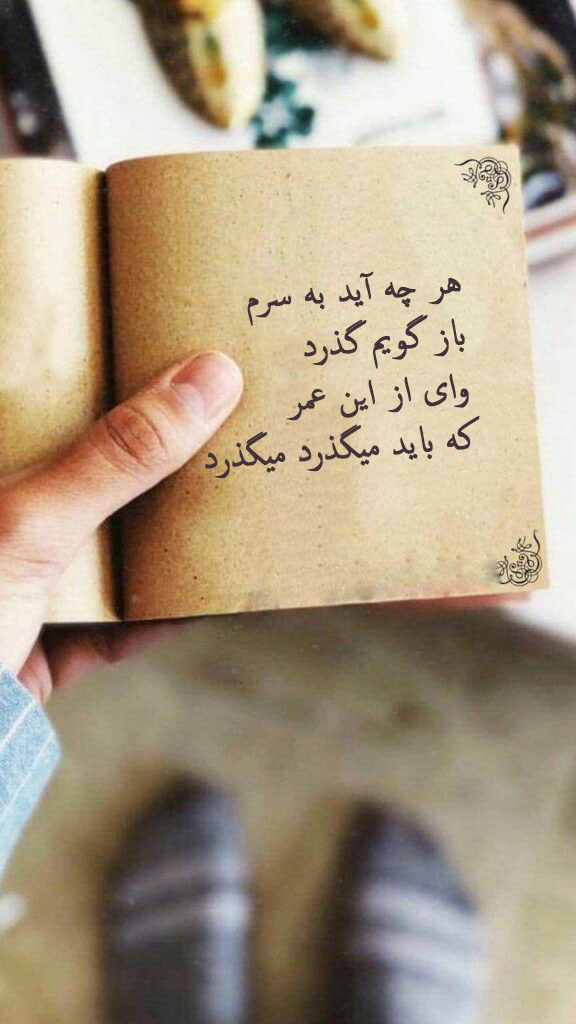 هر چه آید به سرم
باز گویم گذرد
وای از این عمر
که باید میگذرد میگذرد